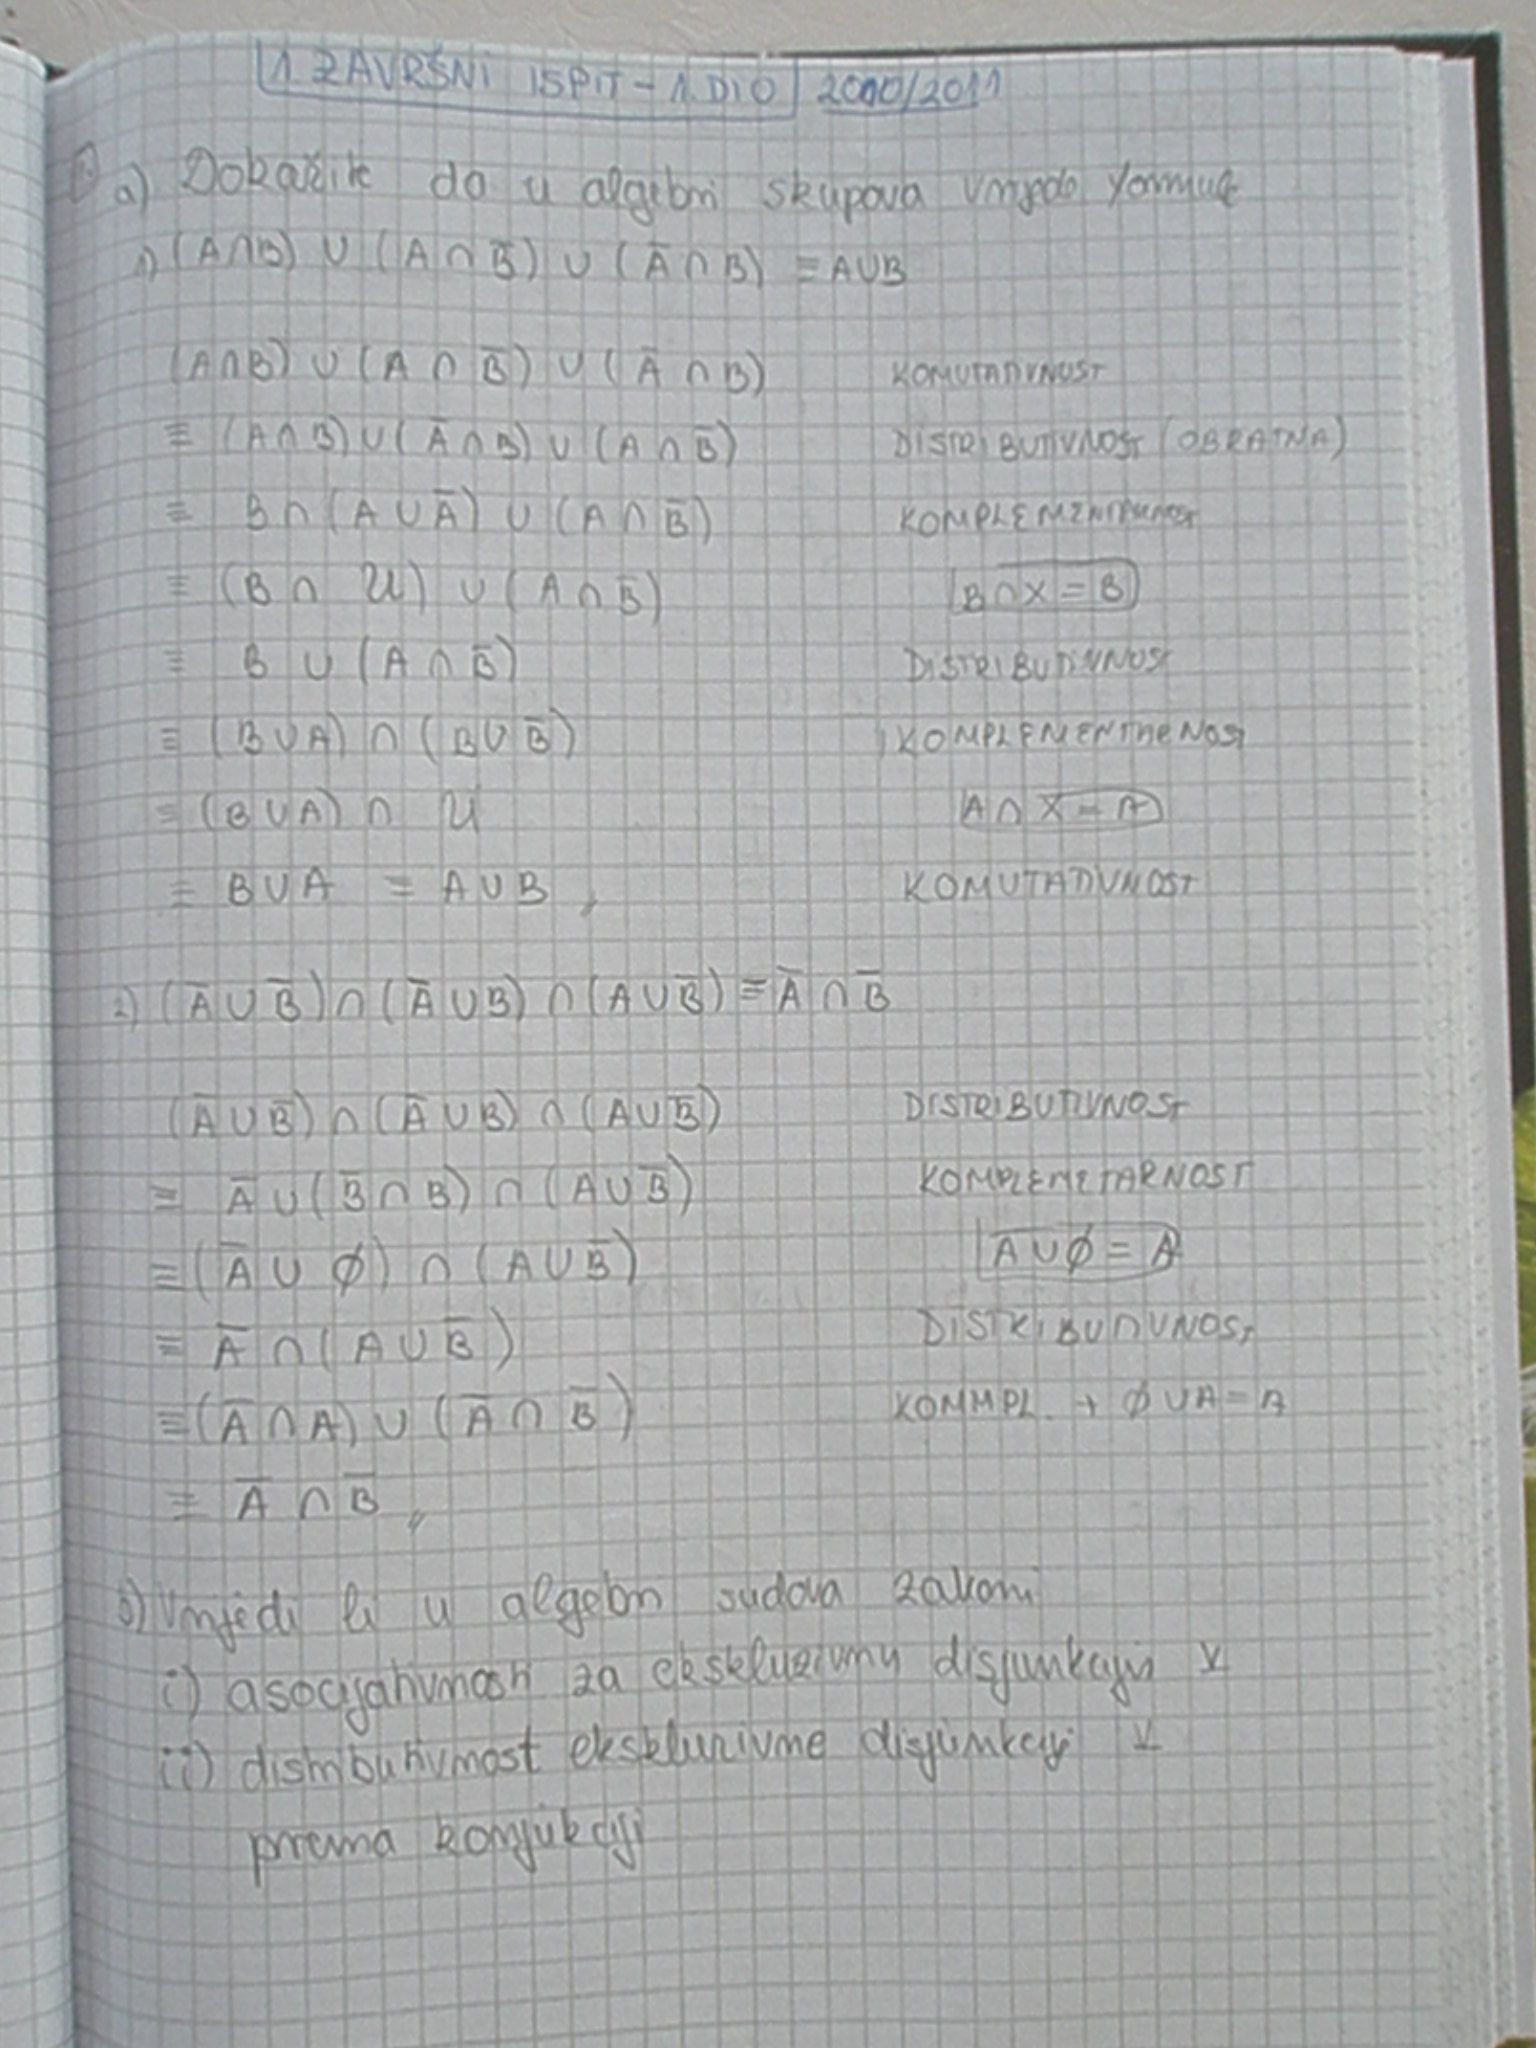 1. ZAVRŠNI ISPIT - 1. DIO 2010/2011
1. a) Dokažite da u algebri skupova vrijede formule
1) (A∩B) ∪ (A∩B̅) ∪ (A̅∩B) ≡ A∪B
(A∩B) ∪ (A∩B̅) ∪ (A̅∩B) KOMUTATIVNOST
≡ (A∩B)∪(A̅∩B)∪(A∩B̅) DISTRIBUTIVNOST (OBRATNA)
≡ B∩(A∪A̅) ∪ (A∩B̅) KOMPLEMENTARNOST
≡ (B∩U) ∪ (A∩B̅) B∩X=B
≡ B ∪ (A∩B̅) DISTRIBUTIVNOST
≡ (B∪A) ∩ (B∪B̅) KOMPLEMENTARNOST
≡ (B∪A) ∩ U A∩X=A
= B∪A = A∪B,, KOMUTATIVNOST
2) (A̅∪B̅)∩(A̅∪B)∩(A∪B̅) ≡ A̅∩B̅
(A̅∪B̅)∩(A̅∪B)∩(A∪B̅) DISTRIBUTIVNOST
≡ A̅∪(B̅∩B)∩(A∪B̅) KOMPLEMETARNOST
≡ (A̅∪Ø)∩(A∪B̅) A∪Ø=A
≡ A̅∩(A∪B̅) DISTRIBUTIVNOST
≡ (A̅∩A)∪(A̅∩B̅) KOMMPL. + Ø∪A=A
≡ A̅∩B̅,,
b) Vrijedi li u algebri sudova zakoni
i) asocijativnosti za ekskluzivnu disjunkciju ⊻
ii) distributivnost ekskluzivne disjunkcije ⊻
prema konjukciji